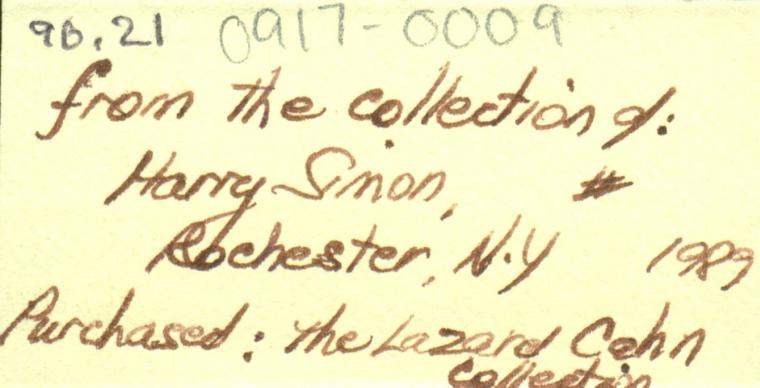 96.21 0917-0009
from the collection of:
Harry Simon, #
Rochester, N.Y 1989
Purchased: the Lazard Cahn
Collection